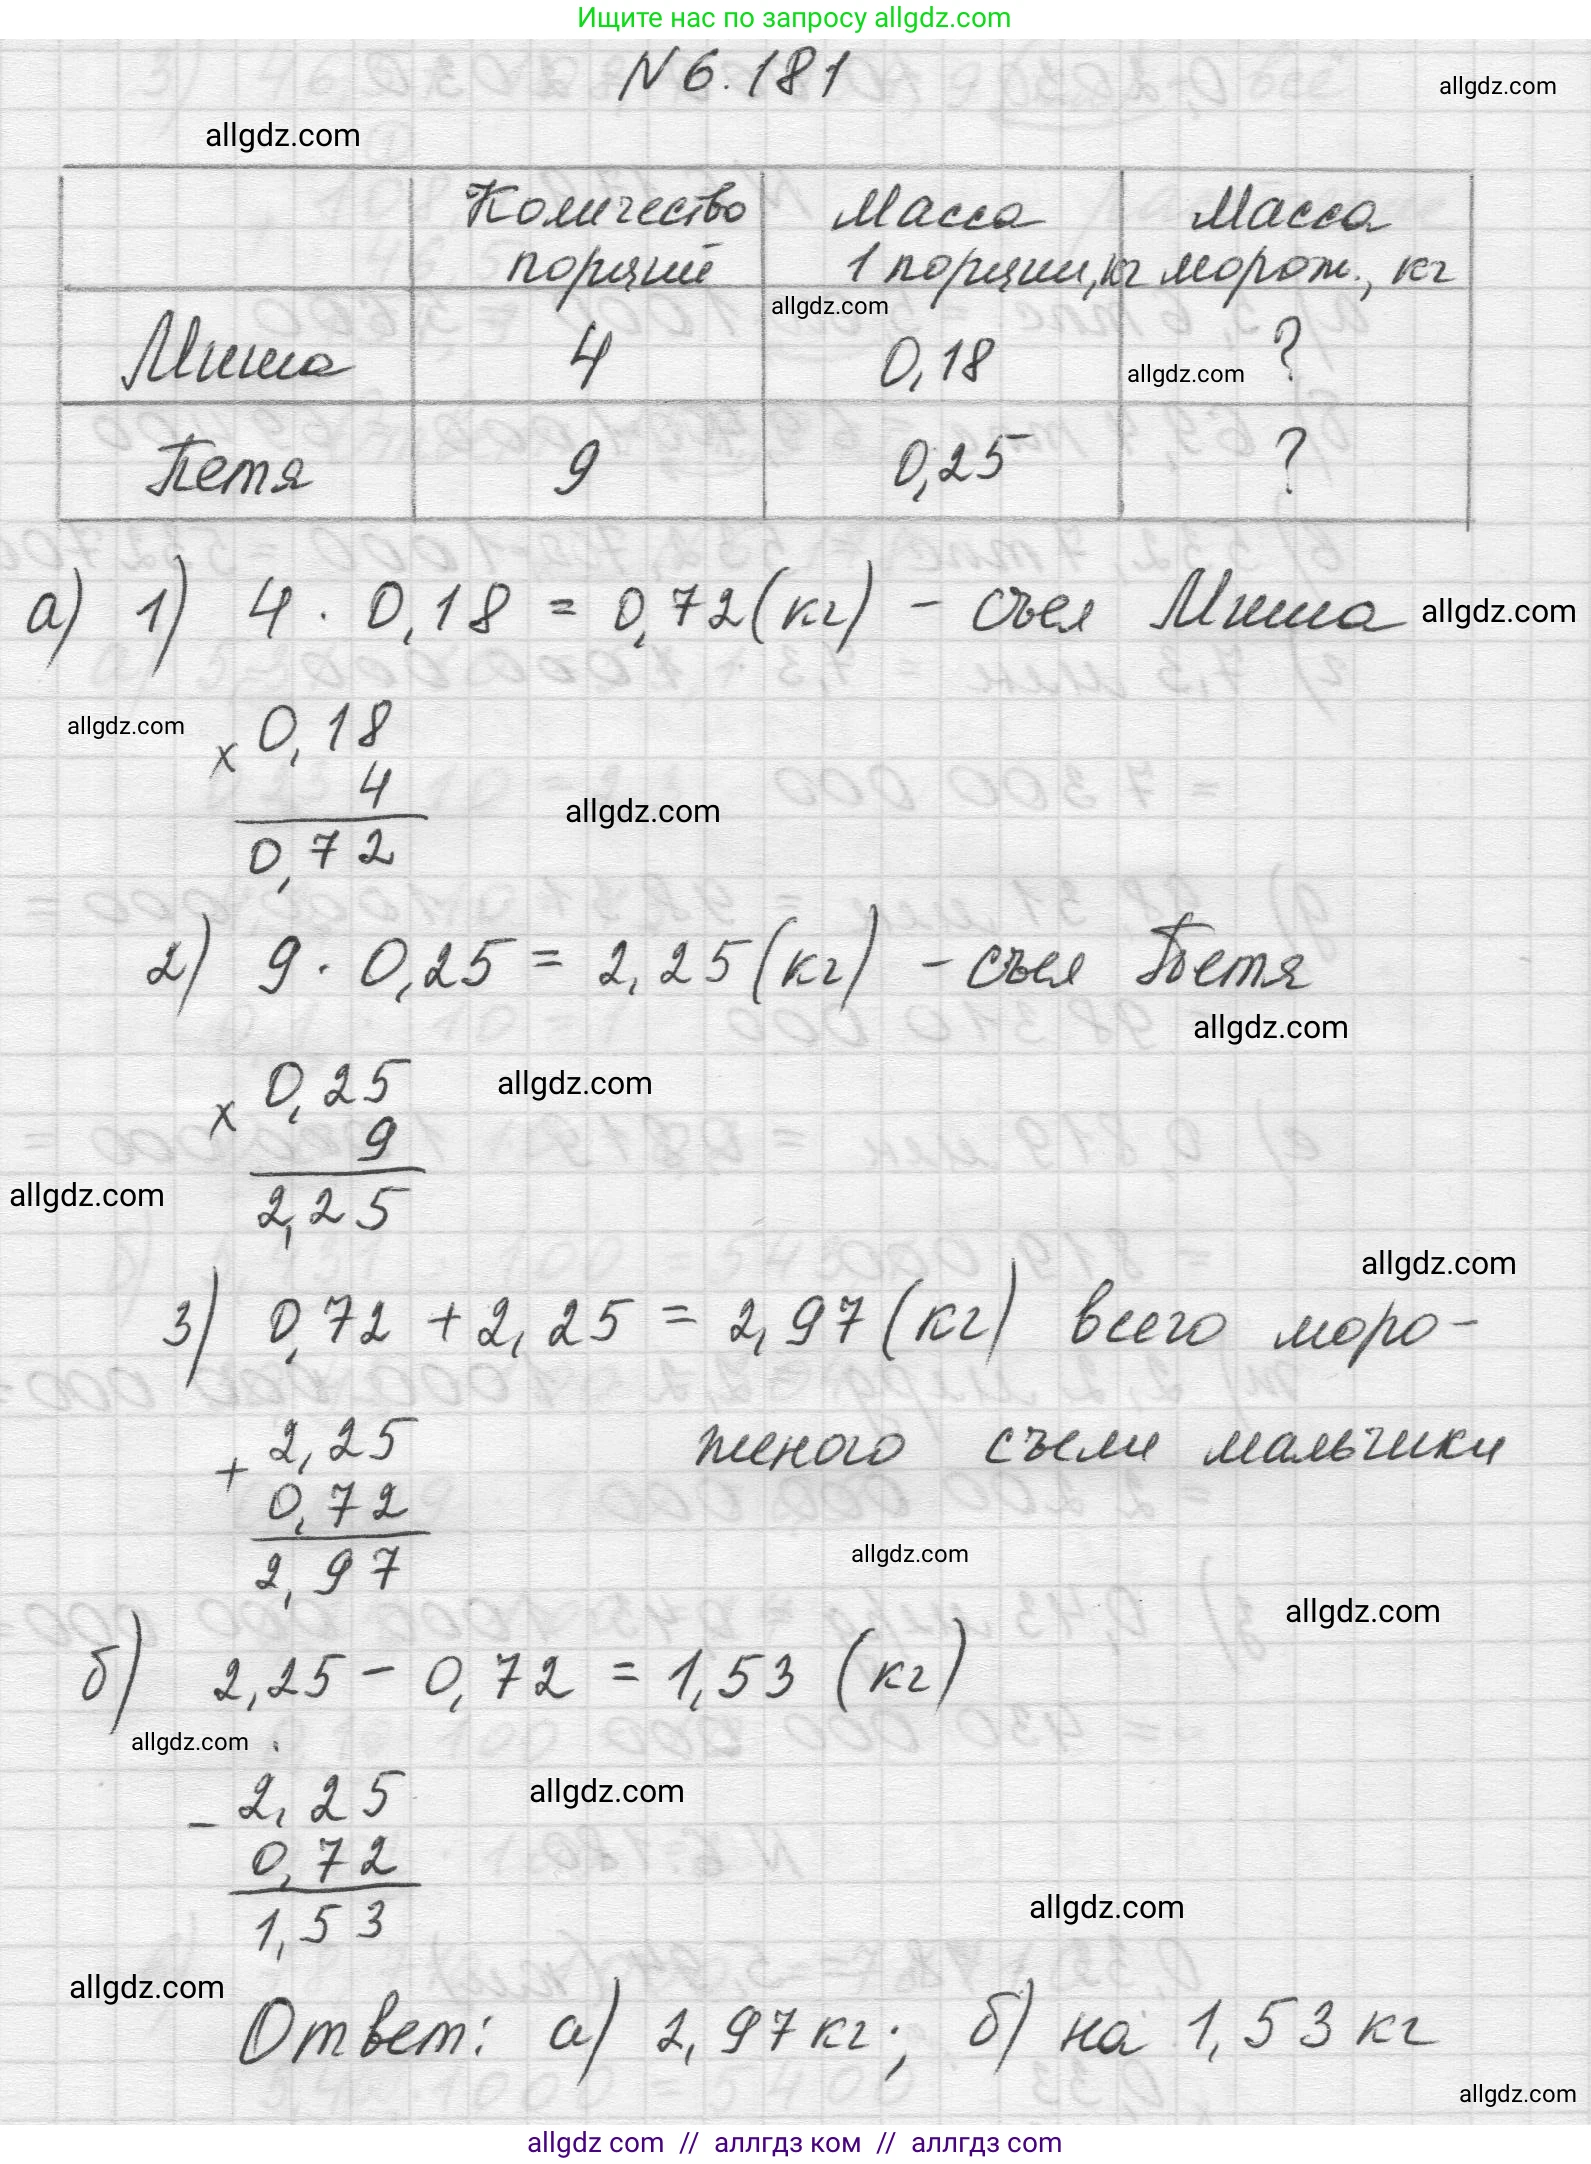 Ищите нас по запросу allgdz.com
N 6.181
allgdz.com
allgdz.com
Количество порций
Масса 1 порции, кг
Масса морож., кг
allgdz.com
Миша 4 0,18 ?
allgdz.com
Петя 9 0,25 ?
а) 1) 4 · 0,18 = 0,72 (кг) - съел Миша
allgdz.com
allgdz.com
× 0,18
4
allgdz.com
0,72
2) 9 · 0,25 = 2,25 (кг) - съел Петя
allgdz.com
× 0,25
allgdz.com
9
allgdz.com
2,25
allgdz.com
3) 0,72 + 2,25 = 2,97 (кг) всего моро-
женого съели мальчики
+ 2,25
0,72
2,97
allgdz.com
allgdz.com
б) 2,25 - 0,72 = 1,53 (кг)
allgdz.com
allgdz.com
- 2,25
0,72
1,53
allgdz.com
allgdz.com
Ответ: а) 2,97 кг; б) на 1,53 кг
allgdz.com
allgdz com // аллгдз ком // аллгдз com